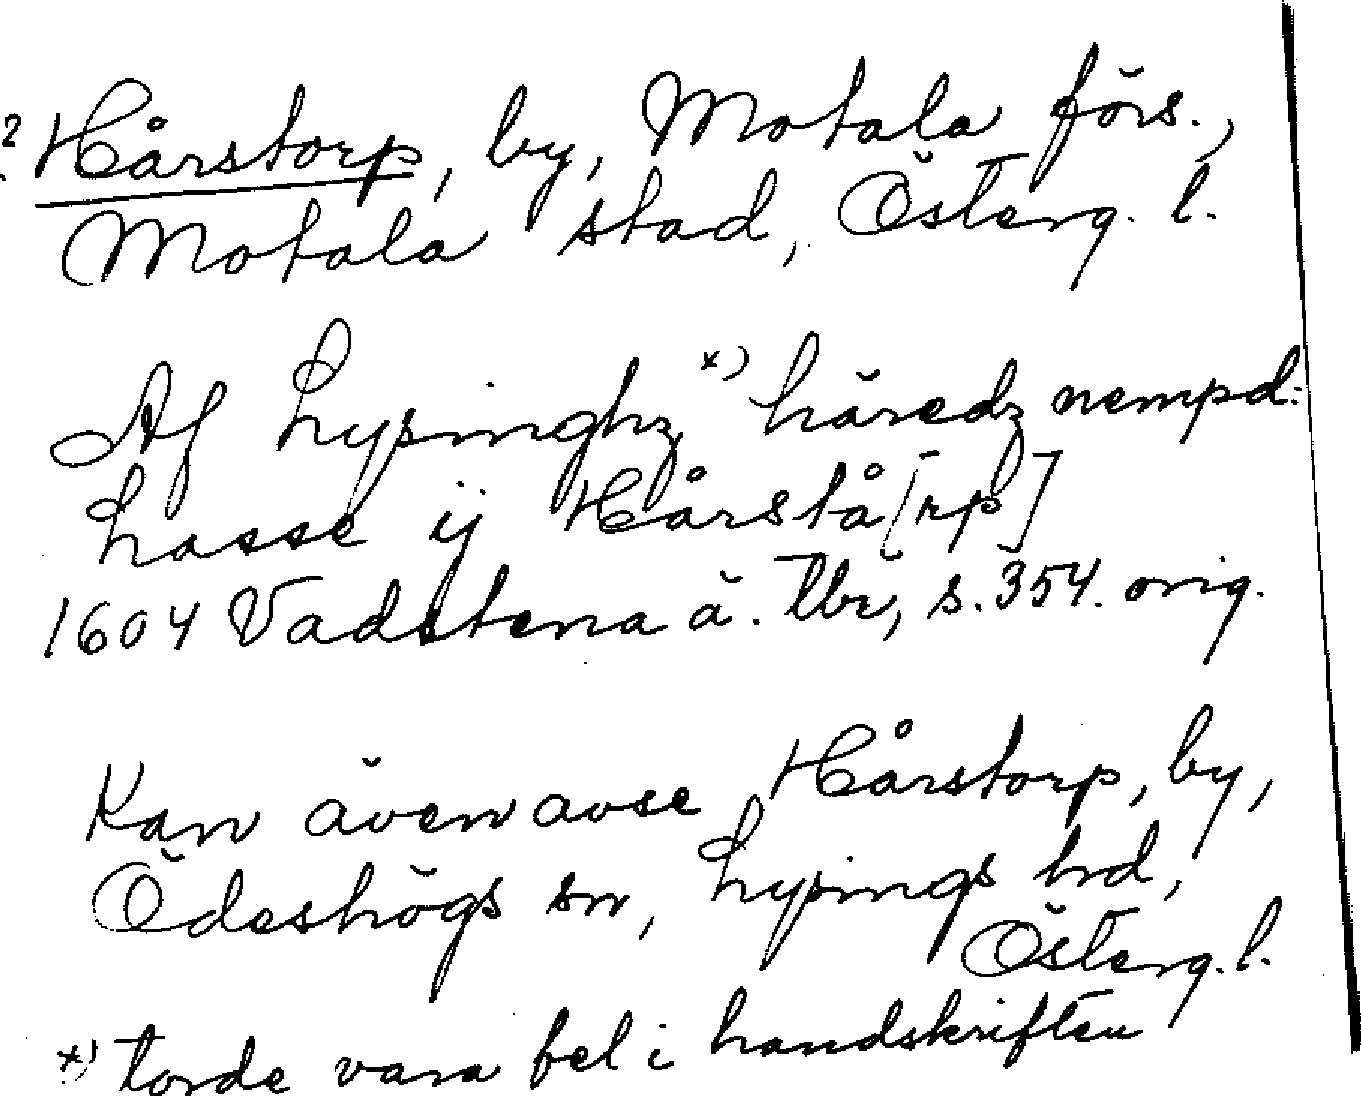 ? Hårstorp, by, Motala förs.,
Motala stad, Österg. l.
Af Lysinghz *) häredz nempd:
Lasse ij Hårstå[rp]
1604 Vadstena ä. tbr, s. 354. orig.
Kan även avse Hårstorp, by,
Ödeshögs sn, Lysings hd,
Österg. l.
*) torde vara fel i handskriften